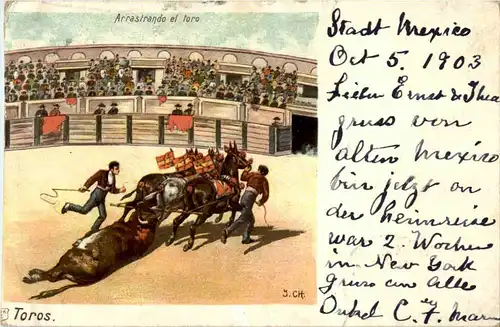 Arrastrando el toro
Stadt Mexico
Oct 5. 1903
Lieber Ernst & Thea
gruss von
alten Mexico
bin jetzt an
der heimreise
war 2. Wochen
in New York
gruss an Alle
Onkel C. F.
J. CH.
Toros.